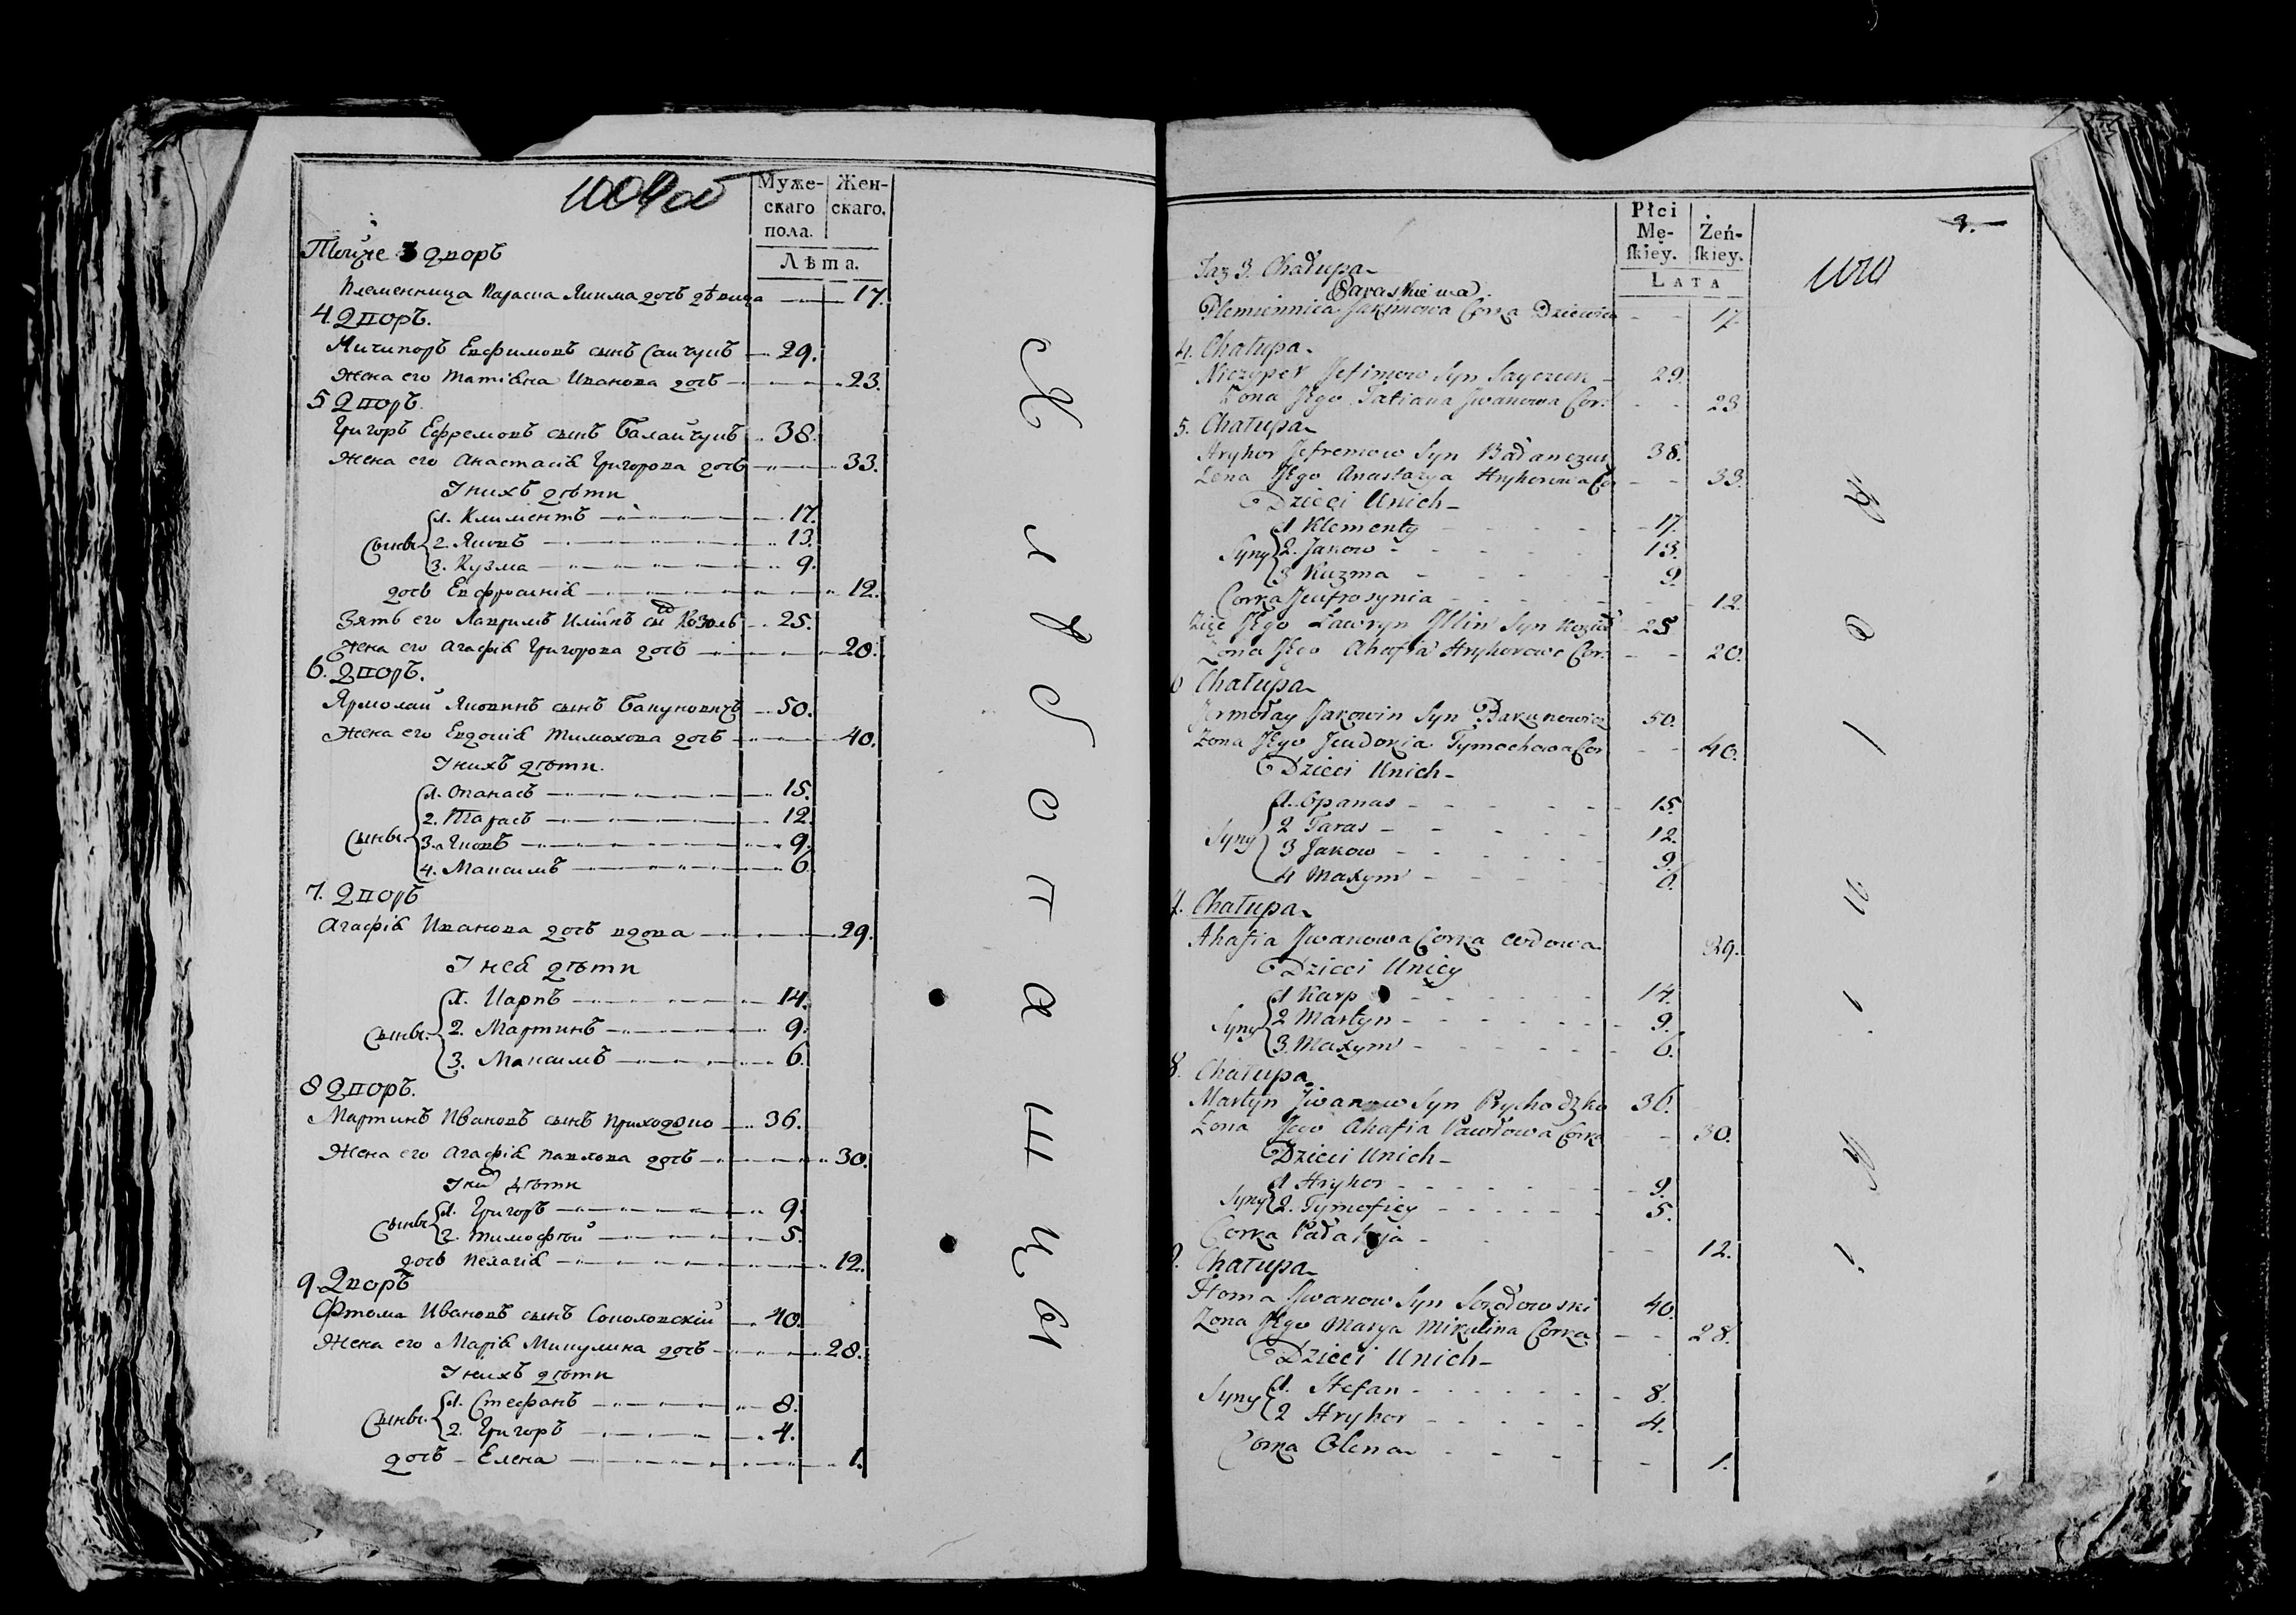 Муже-
скаго
пола.
Жен-
скаго.
Лѣта.
Тойже 3 Дворъ
Племенница Параска Якима дочь дѣвица 17.
4. Дворъ.
Ничипоръ Евфимовъ сынъ Сайчукъ 29.
Жена его Татіѧна Иванова дочь 23.
5 Дворъ.
Григоръ Ефремовъ сынъ 38.
Жена его Анастасіѧ Григорова дочь 33.
У нихъ дѣти
Сыны
1. Климентъ 17.
2. Яковъ 13.
3. Кузма 9.
дочь Евфросиніѧ 12.
Зять его Лавринъ Илїинъ сы Козолъ 25.
Жена его Агафіѧ Григорова дочь 20.
6. Дворъ.
Ярмолай Яковинъ сынъ Бакуновичъ 50.
Жена его Евдокіѧ Тимохова дочь 40.
У нихъ дѣти.
Сыны
1. Опанасъ 15.
2. Тарасъ 12.
3. Яковъ 9.
4. Максимъ 6
7. Дворъ
Агафіѧ Иванова дочь вдова 29.
У неѧ дѣти
Сыны
1. Карпъ 14.
2. Мартинъ 9.
3. Максимъ 6.
8 Дворъ.
Мартинъ Ивановъ сынъ Приходзко 36.
Жена его Агафіѧ Павлова дочь 30.
У ни дѣти
Сыны
1. Григоръ 9.
2. Тимофѣй 5.
дочь Пелагіѧ 12.
9. Дворъ
Фтома Ивановъ сынъ Соколовскій 40.
Жена его Маріѧ Микулина дочь 28.
У нихъ дѣти
Сыны
1. Стефанъ 8.
2. Григоръ 4.
дочь Елена 1.
Х л ѣ б о п а ш ц ы
Płci
Mę-
ſkiey.
Żeń-
ſkiey.
LATA
3.
Taz 3. Chałupa
Paraskiewa
Plemiennica Jakimowa Corka Dziewica 17.
4. Chałupa
Niczyper Jefimow Syn Sayczuk 29.
Zona Jego Tatiana Jwanowa Cor: 23
5. Chałupa
Hryhor Jefremow Syn 38.
Zona Jego Anastazya Hryhorowa Cor 33.
Dzieci Unich
Syny
1 Klementy 17.
2. Jakow 13.
3 Kuzma 9.
Corka Jeufrosynia 12.
Zięć Jego Ławryn Jllin Syn Kozieł 25
Zona Jego Ahafia Hryhorowa Cor: 20.
6 Chałupa
Jermołay Jakowin Syn Bakunowicz 50.
Zona Jego Jeudokia Tymochowa Cor 40.
Dzieci Unich
Syny
1. Opanas 15.
2 Taras 12.
3 Jakow 9.
4 Maxym 6.
7. Chałupa
Ahafia Jwanowa Corka wdowa 29.
Dzieci Unięy
Syny
1 Karp 14.
2 Martyn 9.
3. Maxym 6.
8. Chałupa
Martyn Jwanow Syn Prychodzko 36.
Zona Jego Ahafia Pawłowa Corka 30.
Dzieci Unich
Syny
1 Hryhor 9.
2. Tymofiey 5.
Corka 12.
9. Chałupa
Homa Jwanow Syn Sokołowski 40
Zona Jego Marya Mikulina Corka 28.
Dzieci Unich
Syny
1. Stefan 8.
2 Hryhor 4.
Corka Olena 1.